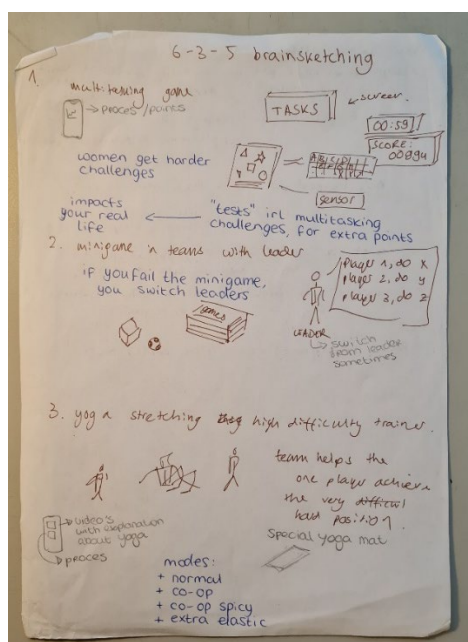 6-3-5 brainsketching
1.
multitasking game
→ proces / poires
TASKS
← screen.
00:59
SCORE:
00994
women get harder
challenges
sensor
impacts
your real
life
← "tests" irl multitasking
challenges, for extra points
2. minigame in teams with leader
if you fail the minigame,
you switch leaders
player 1, do x
player 2, do y
player 3, do z
games
LEADER
↳ switch
from leader
sometimes
3. yoga stretching high difficulty trainer.
team helps the
one player achieve
the very difficul
hard position.
→ video's
with explanation
about yoga
→ proces
special yoga mat
modes:
+ normal
+ co-op
+ co-op spicy
+ extra elastic